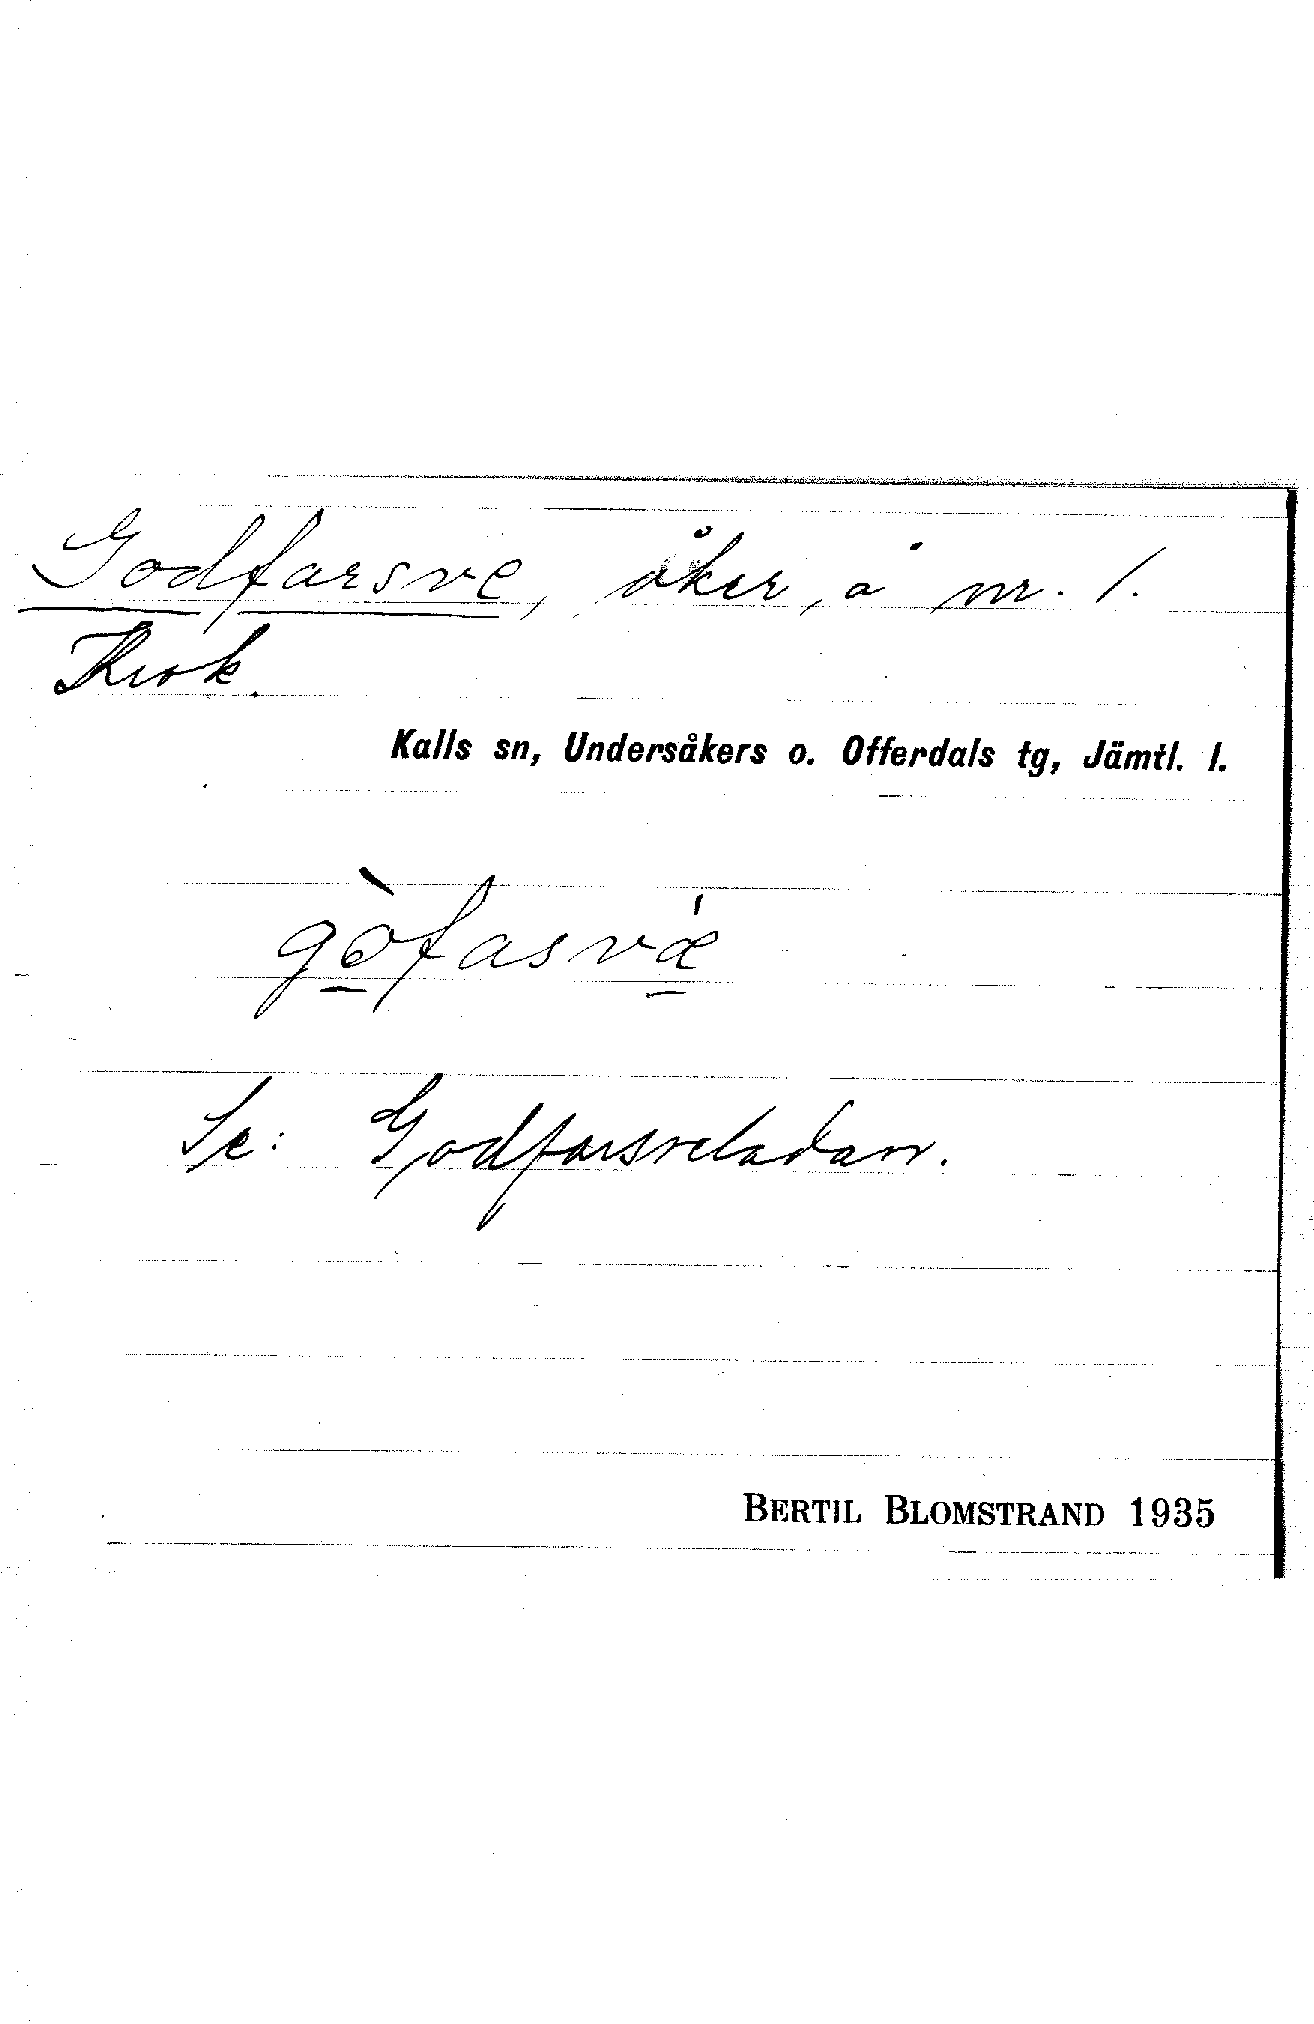 Godfarsve, åker, å nr. 1.
Krok.
Kalls sn, Undersåkers o. Offerdals tg, Jämtl. l.
gòfasvǽ
Se: Godfarsveladan.
BERTIL BLOMSTRAND 1935